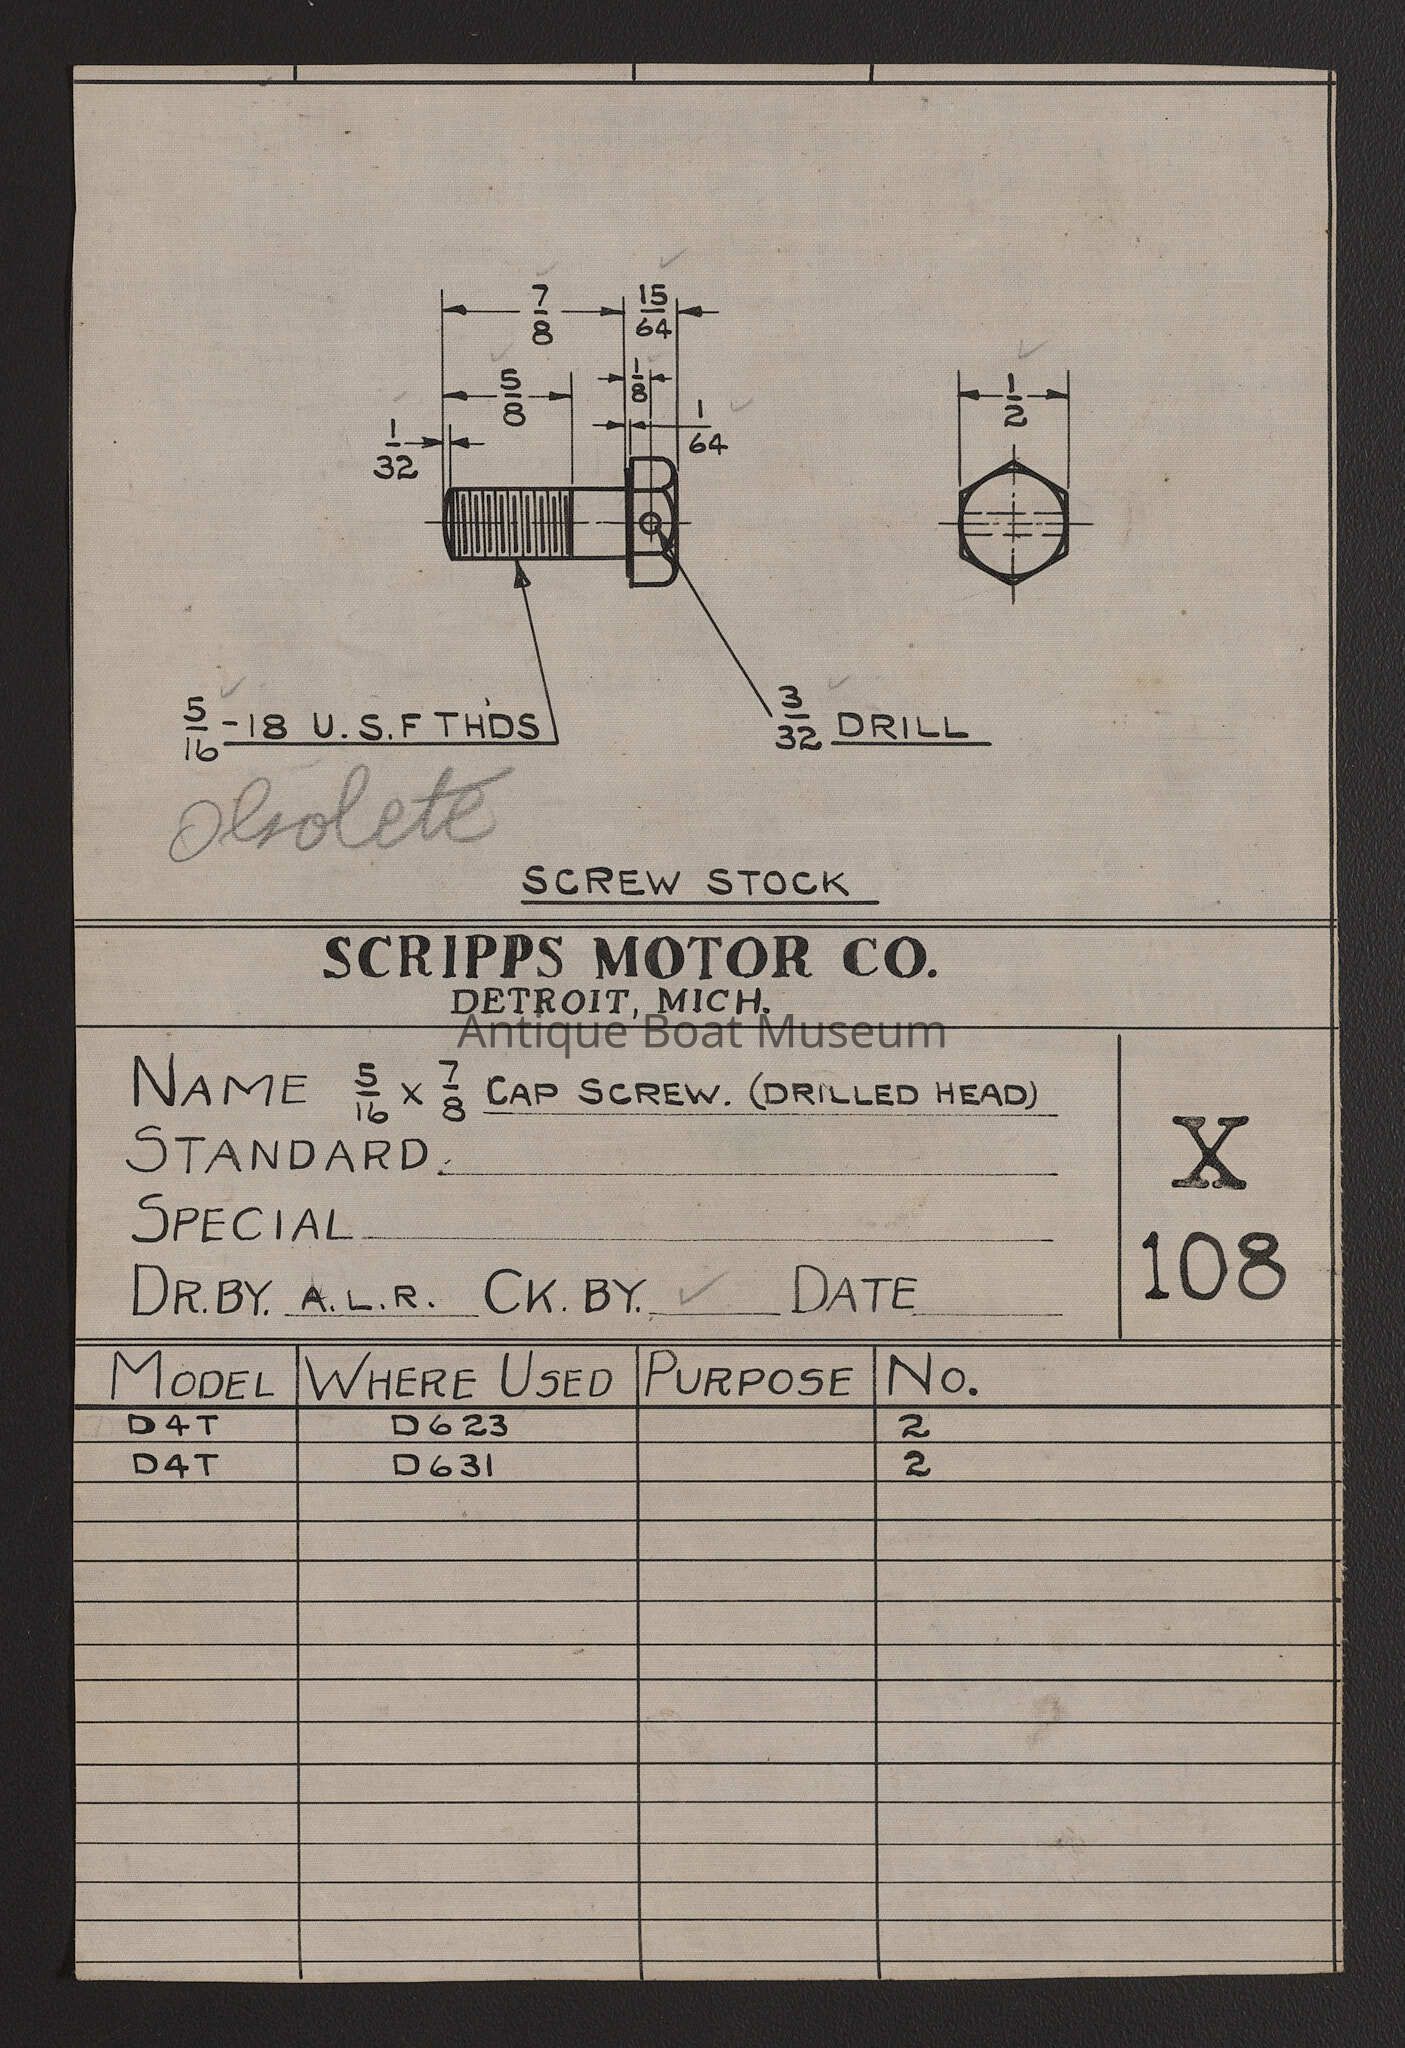 7/8 15/64
5/8 1/8 1/2
1/32 1/64
5/16 -18 U.S.F TH'DS
3/32 DRILL
Obsolete
SCREW STOCK
SCRIPPS MOTOR CO.
DETROIT, MICH.
Antique Boat Museum
NAME 5/16 x 7/8 CAP SCREW. (DRILLED HEAD)
STANDARD.
SPECIAL
DR.BY. A.L.R. CK. BY. ✓ DATE
X
108
MODEL WHERE USED PURPOSE NO.
D4T D623 2
D4T D631 2